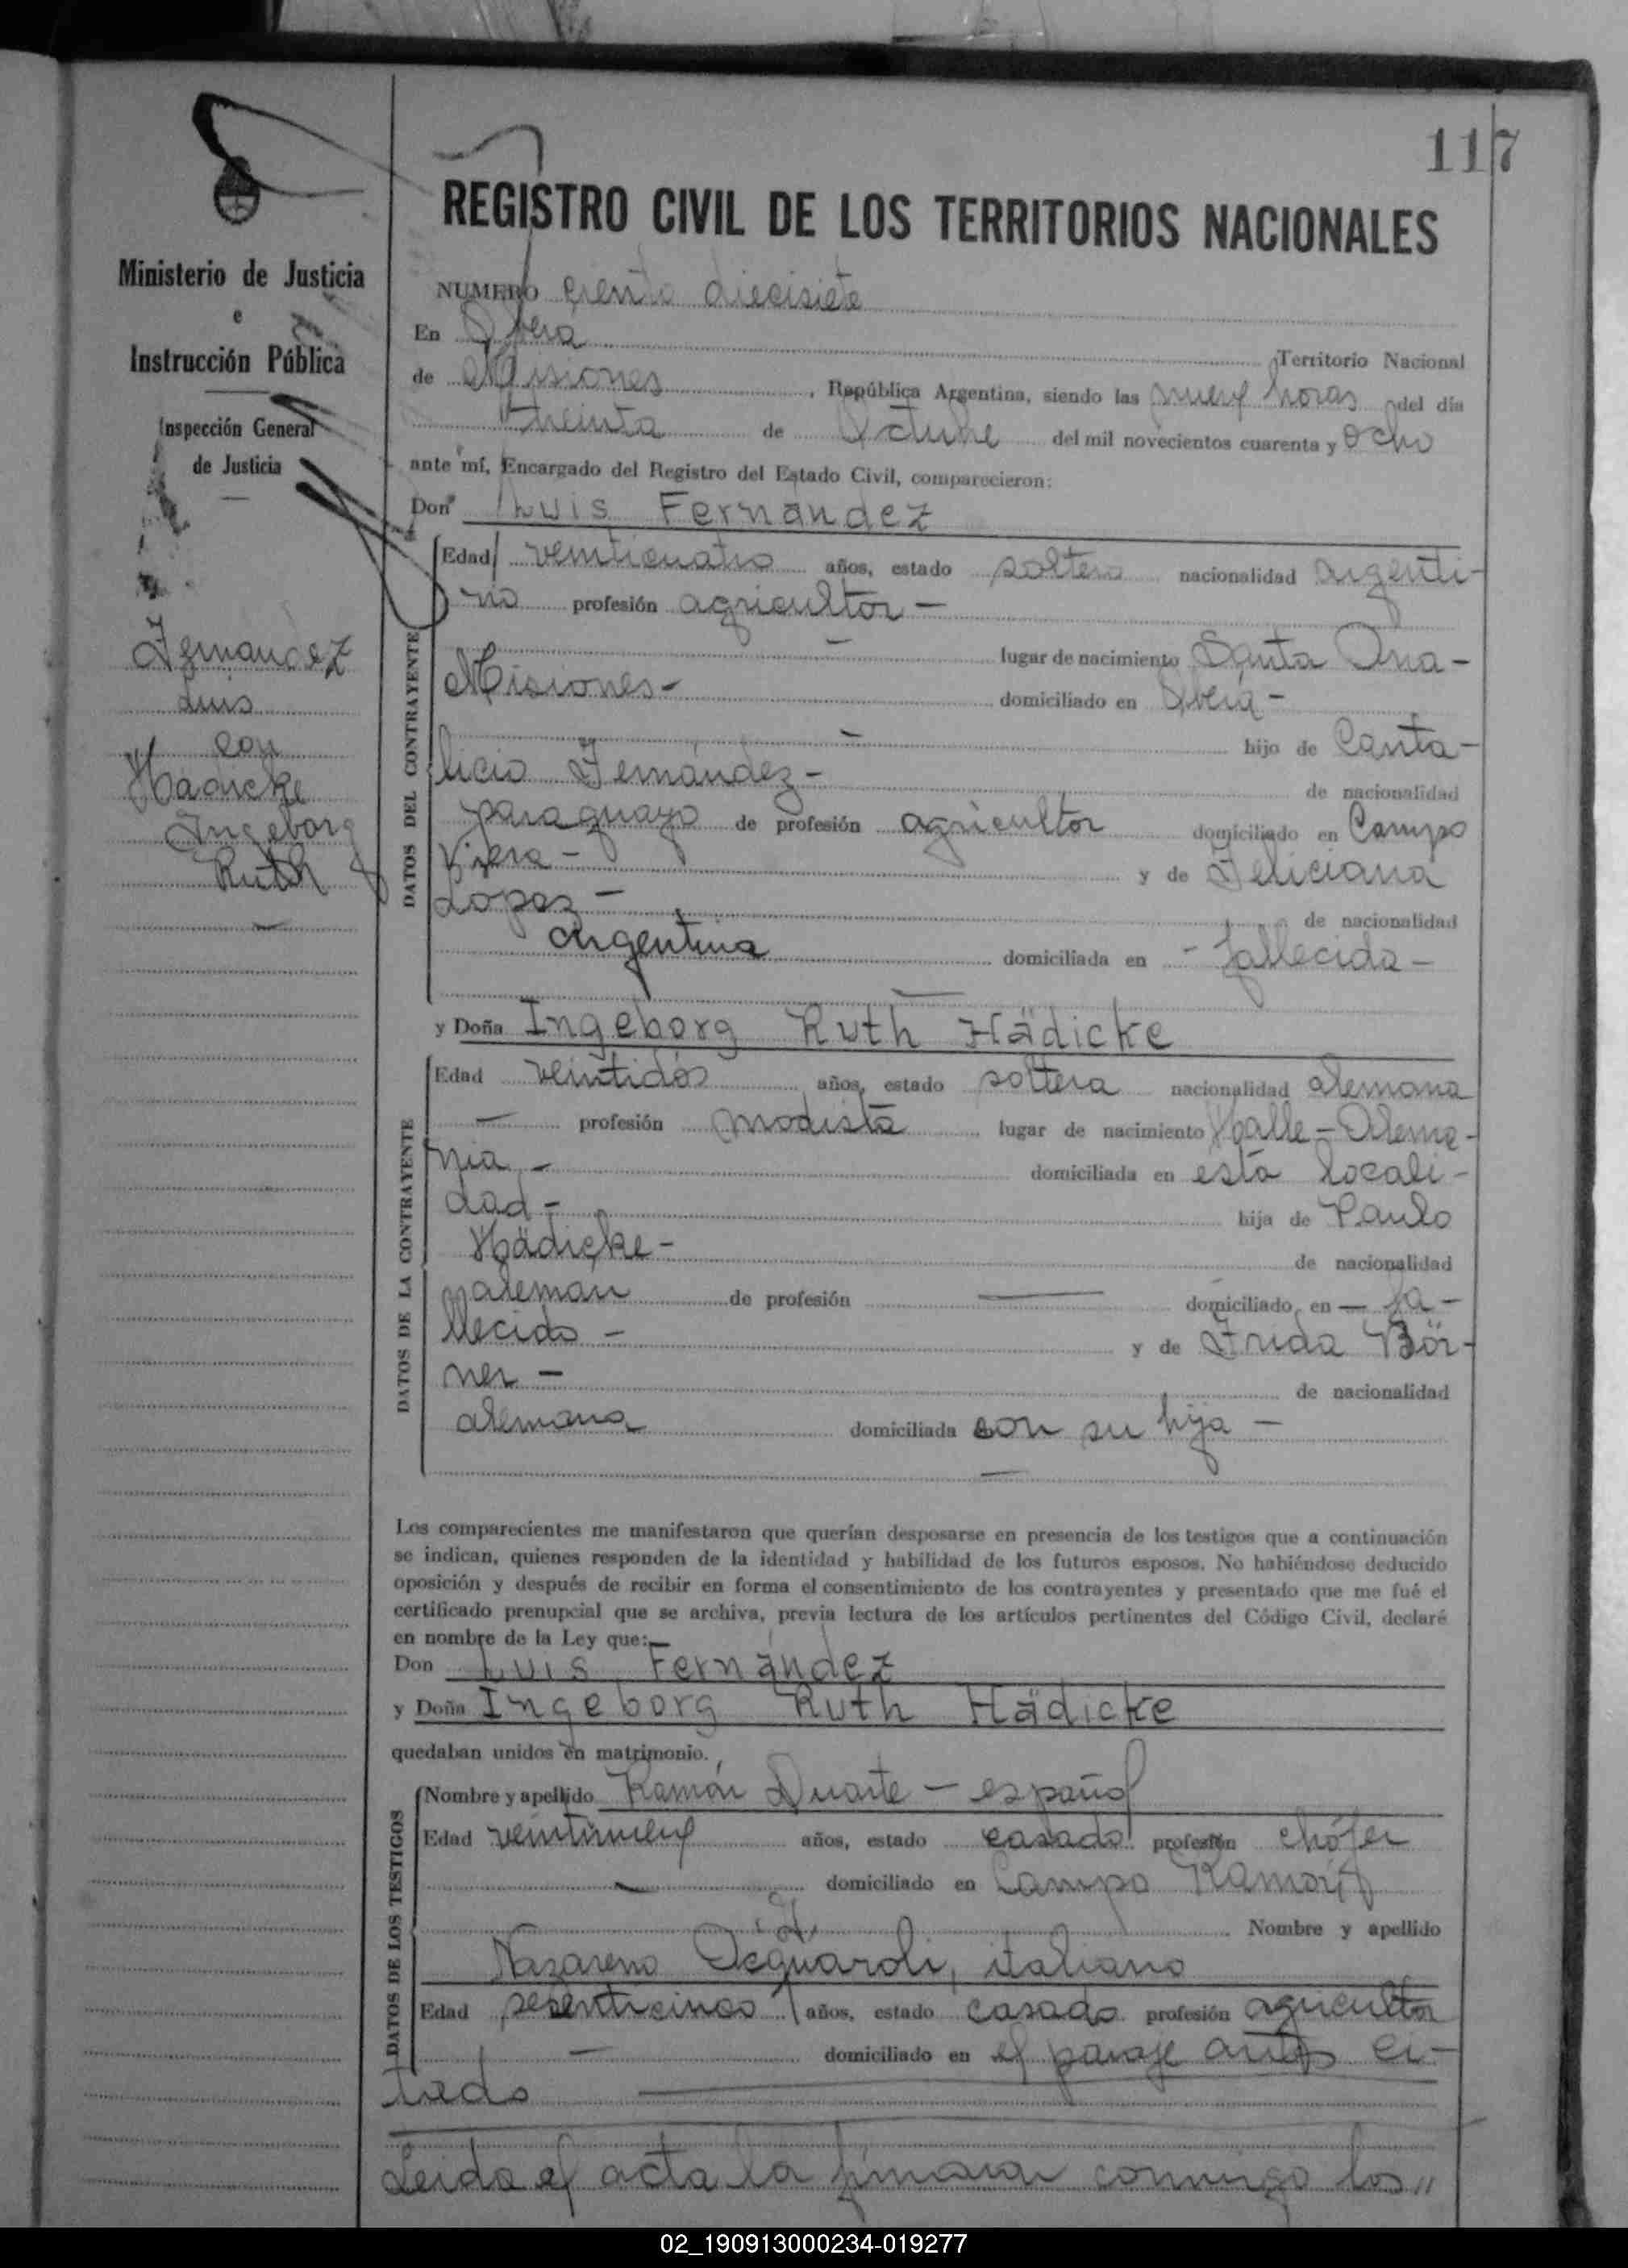 117
REGISTRO CIVIL DE LOS TERRITORIOS NACIONALES
Ministerio de Justicia
e
Instrucción Pública
Inspección General
de Justicia
Fernandez
Luis
con
Hädicke
Ingeborg
Ruth
NUMERO ciento diecisiete
En Oberá Territorio Nacional
de Misiones, República Argentina, siendo las nueve horas del día
treinta de Octubre del mil novecientos cuarenta y ocho
ante mí, Encargado del Registro del Estado Civil, comparecieron:
Don Luis Fernández
DATOS DEL CONTRAYENTE
Edad veinticuatro años, estado soltero nacionalidad argenti-
no profesión agricultor -
- lugar de nacimiento Santa Ana -
Misiones - domiciliado en Oberá -
- hijo de Canta-
licio Fernández - de nacionalidad
paraguayo de profesión agricultor domiciliado en Campo
Viera - y de Feliciana
Lopez - de nacionalidad
argentina domiciliada en - fallecida -
y Doña Ingeborg Ruth Hädicke
DATOS DE LA CONTRAYENTE
Edad veintidós años, estado soltera nacionalidad alemana
- profesión modista lugar de nacimiento Halle - Alema-
nia - domiciliada en esta locali-
dad - hija de Paulo
Hädicke - de nacionalidad
aleman de profesión — domiciliado en — fa-
llecido - y de Frida Bör-
ner - de nacionalidad
alemana domiciliada con su hija -
Los comparecientes me manifestaron que querían desposarse en presencia de los testigos que a continuación
se indican, quienes responden de la identidad y habilidad de los futuros esposos. No habiéndose deducido
oposición y después de recibir en forma el consentimiento de los contrayentes y presentado que me fué el
certificado prenupcial que se archiva, previa lectura de los artículos pertinentes del Código Civil, declaré
en nombre de la Ley que:
Don Luis Fernández
y Doña Ingeborg Ruth Hädicke
quedaban unidos en matrimonio.
DATOS DE LOS TESTIGOS
Nombre y apellido Ramón Duarte - español
Edad veintinueve años, estado casado profesión chófer
- domiciliado en Campo Ramón
y Nombre y apellido
Nazareno italiano
Edad sesenticinco años, estado casado profesión agricultor
- domiciliado en el paraje antes ci-
tado
Leida el acta la firman conmigo los "
02_190913000234-019277